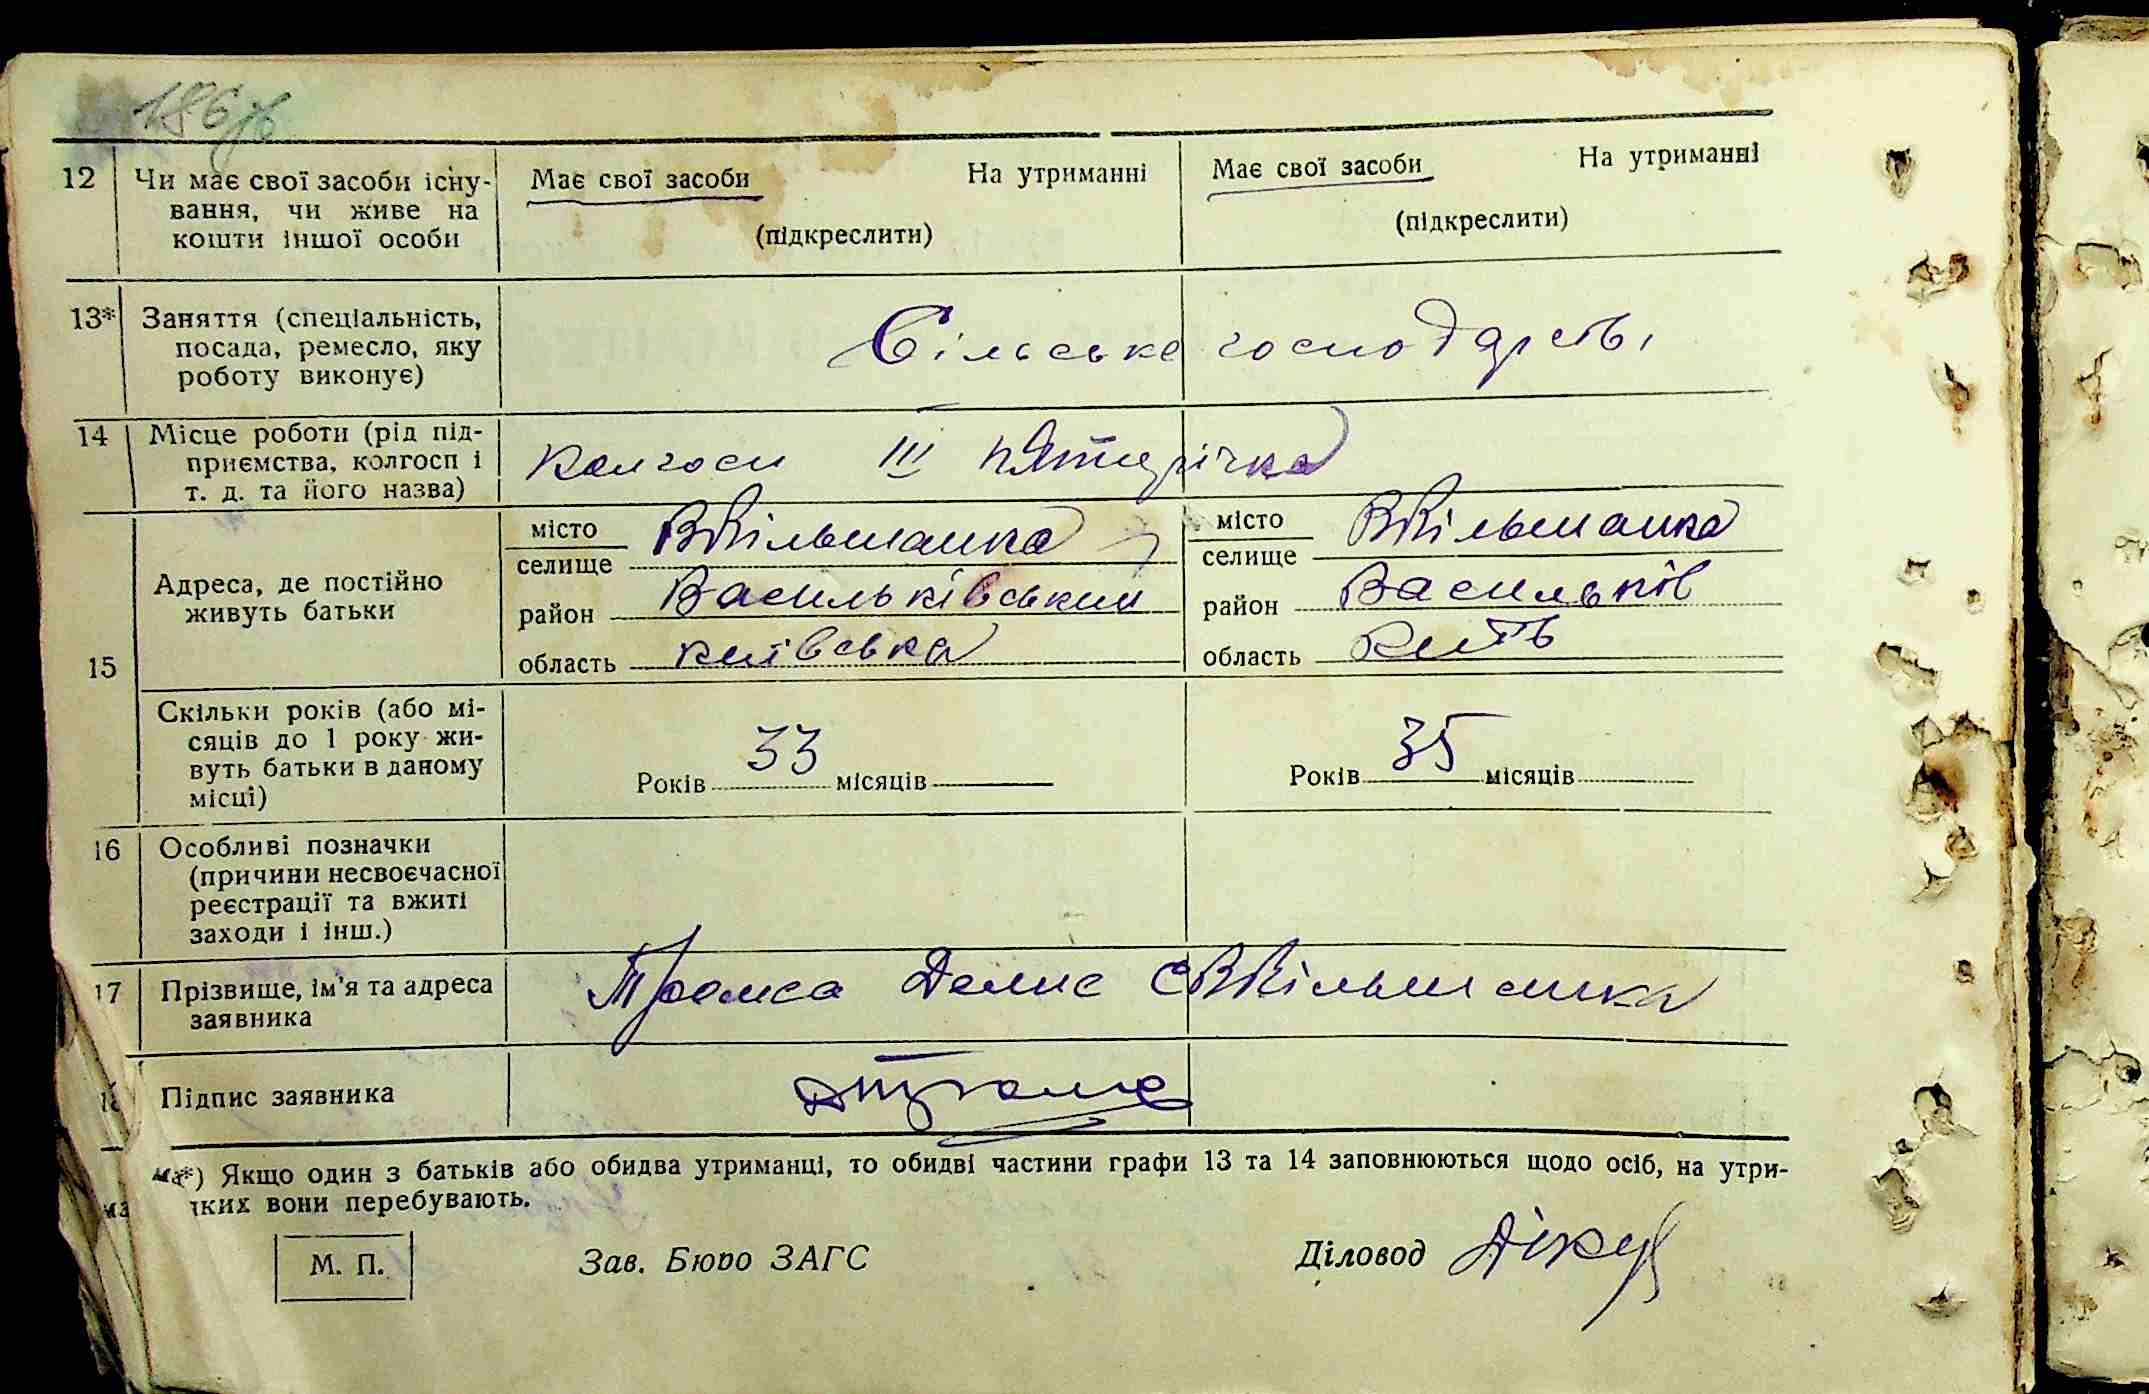 12 Чи має свої засоби існу- Має свої засоби На утриманні Має свої засоби На утриманні
вання, чи живе на
кошти іншої особи (підкреслити) (підкреслити)
13* Заняття (спеціальність,
посада, ремесло, яку Сільське господарств,
роботу виконує)
14 Місце роботи (рід під-
приємства, колгосп і Колгосп III пятирічка
т. д. та його назва)
місто ВВільшанка місто ВВільшанка
селище селище
Адреса, де постійно
живуть батьки
район Васильківський район Васильків
15 область київська область
Скільки років (або мі-
сяців до 1 року жи-
вуть батьки в даному Років 33 місяців Років 35 місяців
місці)
16 Особливі позначки
(причини несвоєчасної
реєстрації та вжиті
заходи і інш.)
17 Прізвище, ім'я та адреса
заявника с ВВільшанка
Підпис заявника
*) Якщо один з батьків або обидва утриманці, то обидві частини графи 13 та 14 заповнюються щодо осіб, на утри-
яких вони перебувають.
М. П. Зав. Бюро ЗАГС Діловод